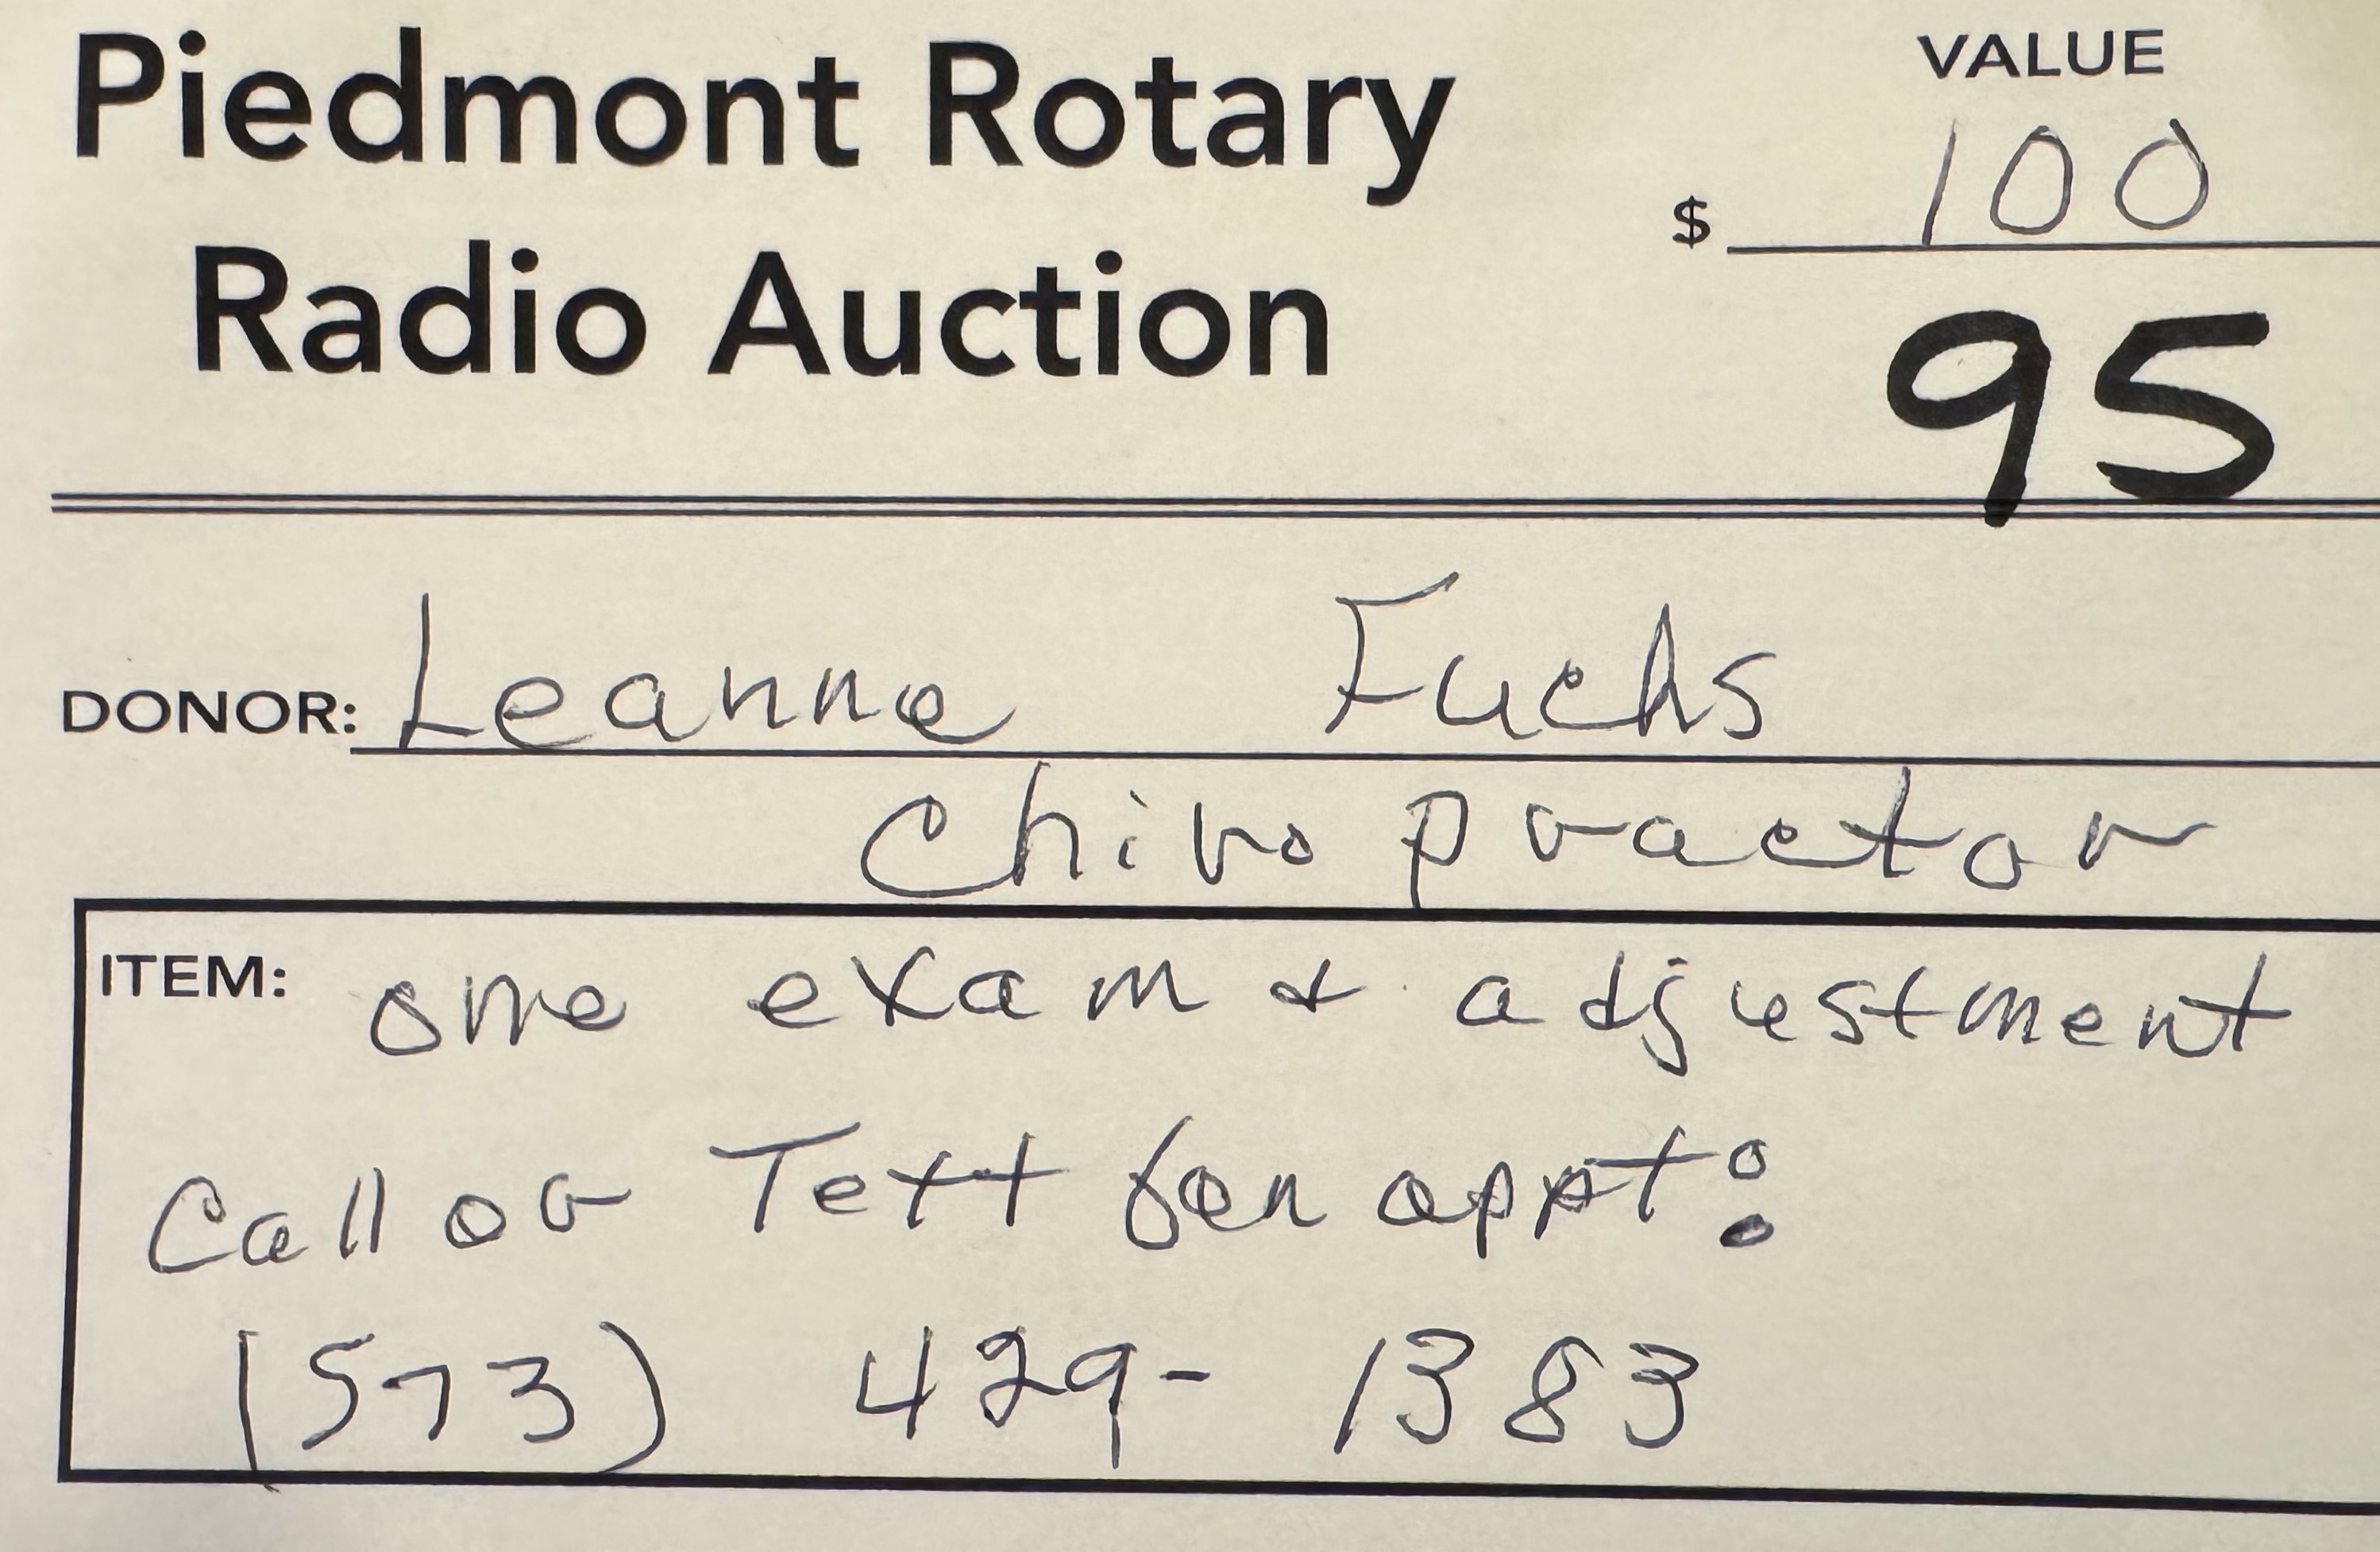 Piedmont Rotary
Radio Auction
VALUE
$ 100
95
DONOR: Leanne Fuchs
Chiropractor
ITEM: one exam & adjustment
Call or Text for appt:
(573) 429-1383